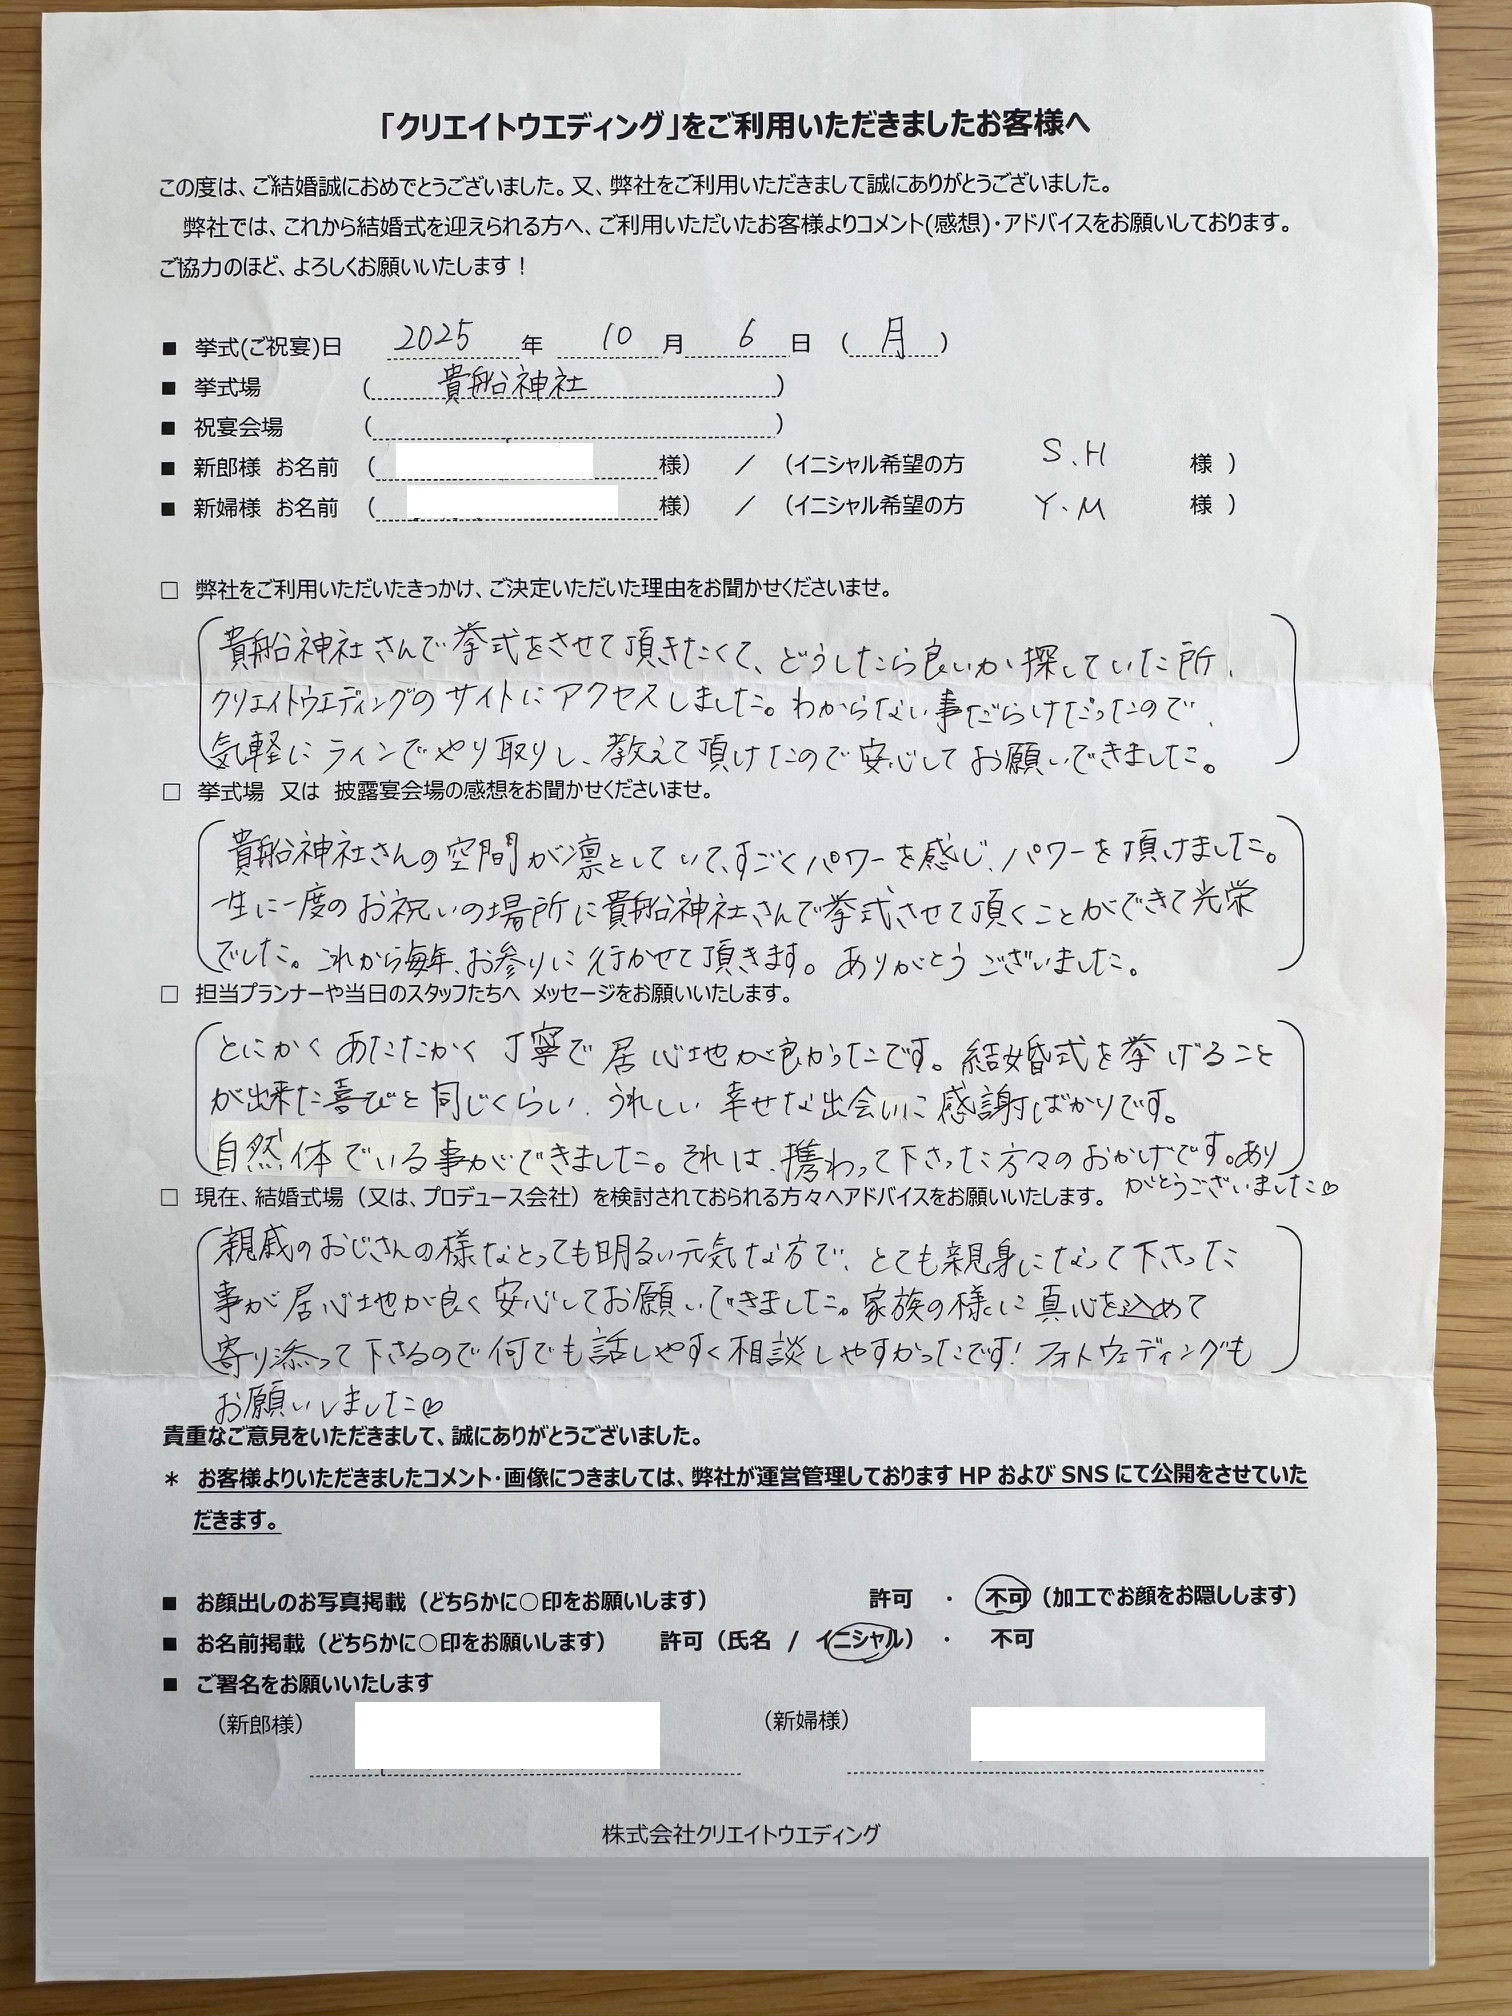 「クリエイトウエディング」をご利用いただきましたお客様へ
この度は、ご結婚誠におめでとうございました。又、弊社をご利用いただきまして誠にありがとうございました。
弊社では、これから結婚式を迎えられる方へ、ご利用いただいたお客様よりコメント(感想)・アドバイスをお願いしております。
ご協力のほど、よろしくお願いいたします！
■ 挙式(ご祝宴)日 2025 年 10 月 6 日 （ 月 ）
■ 挙式場 （ 貴船神社 ）
■ 祝宴会場 （ ）
■ 新郎様 お名前 （ 様） ／ （イニシャル希望の方 S.H 様 ）
■ 新婦様 お名前 （ 様） ／ （イニシャル希望の方 Y.M 様 ）
□ 弊社をご利用いただいたきっかけ、ご決定いただいた理由をお聞かせくださいませ。
貴船神社さんで挙式をさせて頂きたくて、どうしたら良いか探していた所、
クリエイトウエディングのサイトにアクセスしました。わからない事だらけだったので、
気軽にラインでやり取りし、教えて頂けたので安心してお願いできました。
□ 挙式場 又は 披露宴会場の感想をお聞かせくださいませ。
貴船神社さんの空間が凛としていて、すごくパワーを感じ、パワーを頂けました。
一生に一度のお祝いの場所に貴船神社さんで挙式させて頂くことができて光栄
でした。これから毎年、お参りに行かせて頂きます。ありがとうございました。
□ 担当プランナーや当日のスタッフたちへ メッセージをお願いいたします。
とにかくあたたかく丁寧で居心地が良かったです。結婚式を挙げること
が出来た喜びと同じくらい、うれしい幸せな出会いに感謝ばかりです。
自然体でいる事ができました。それは、携わって下さった方々のおかげです。あり
がとうございました♡
□ 現在、結婚式場（又は、プロデュース会社）を検討されておられる方々へアドバイスをお願いいたします。
親戚のおじさんの様なとっても明るい元気な方で、とても親身になって下さった
事が居心地が良く安心してお願いできました。家族の様に真心を込めて
寄り添って下さるので何でも話しやすく相談しやすかったです！フォトウェディングも
お願いしました♡
貴重なご意見をいただきまして、誠にありがとうございました。
＊ お客様よりいただきましたコメント・画像につきましては、弊社が運営管理しております HP および SNS にて公開をさせていた
だきます。
■ お顔出しのお写真掲載（どちらかに○印をお願いします） 許可 ・ 不可（加工でお顔をお隠しします）
■ お名前掲載（どちらかに○印をお願いします） 許可（氏名 / イニシャル）・ 不可
■ ご署名をお願いいたします
（新郎様） （新婦様）
株式会社クリエイトウエディング